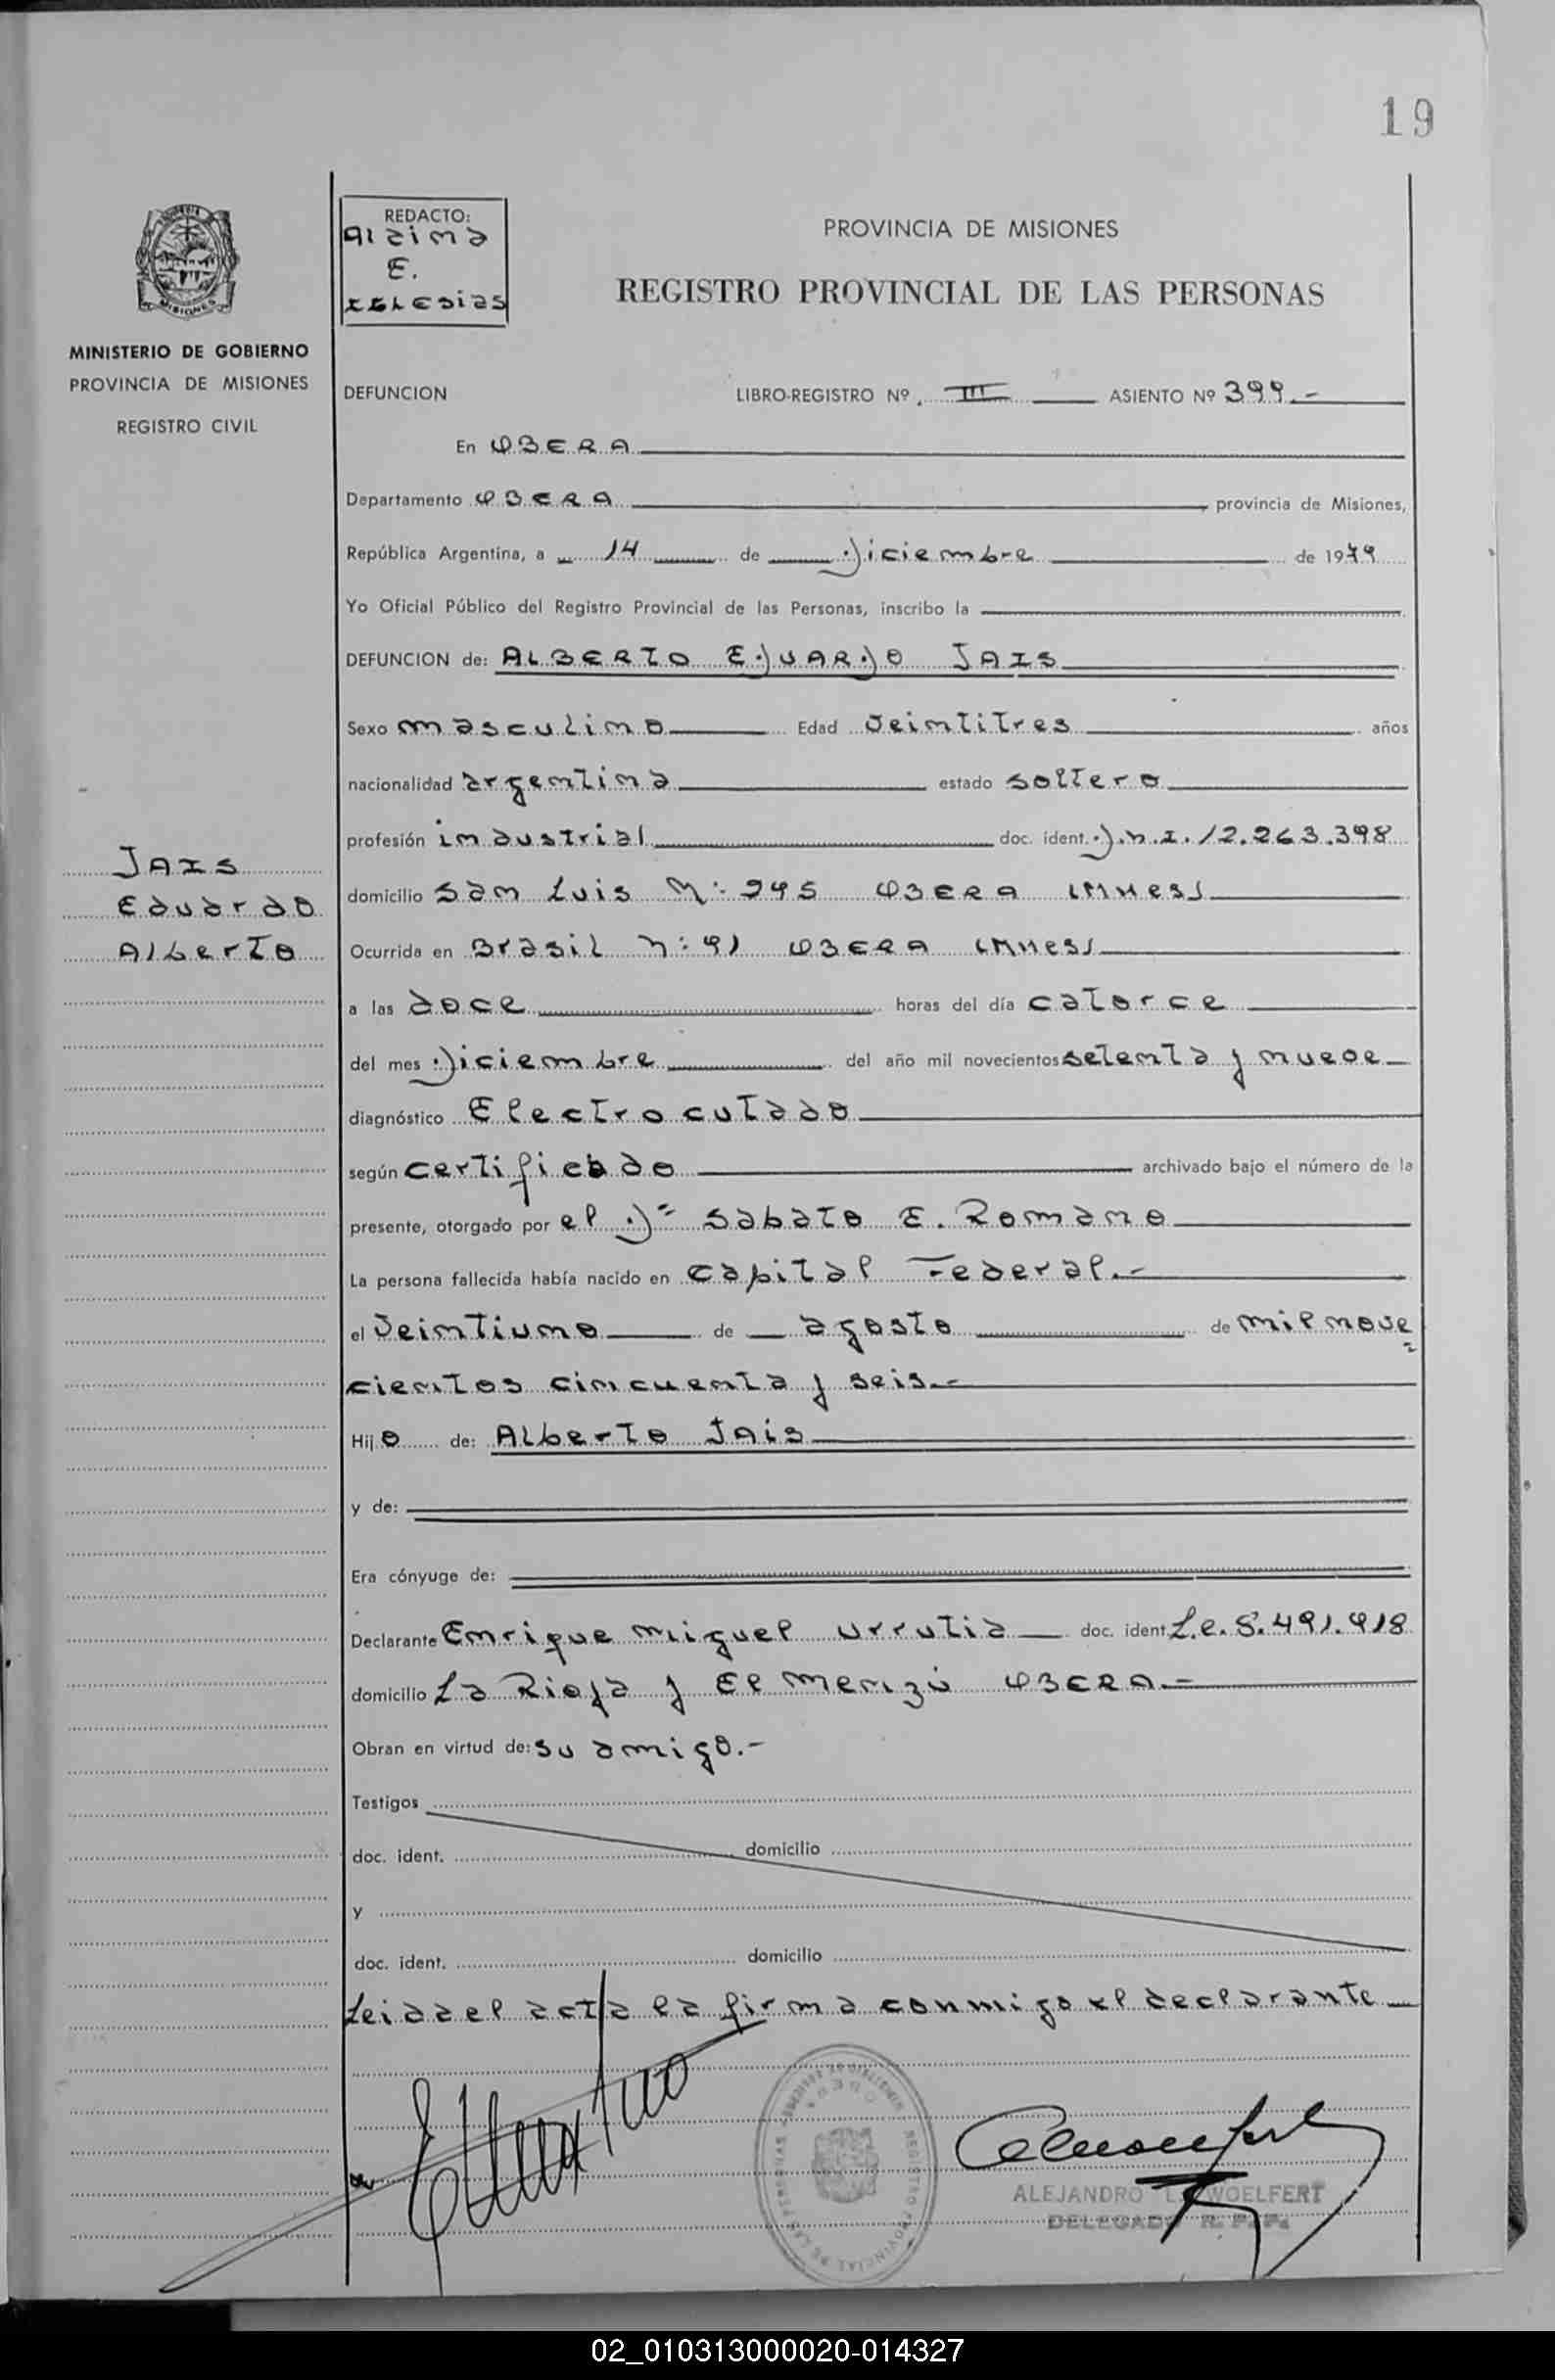 19
REDACTO:
Alzima
E.
IGLESias
PROVINCIA DE MISIONES
REGISTRO PROVINCIAL DE LAS PERSONAS
MINISTERIO DE GOBIERNO
PROVINCIA DE MISIONES
REGISTRO CIVIL
DEFUNCION LIBRO-REGISTRO Nº III ASIENTO Nº 399.-
En OBERA
Departamento OBERA provincia de Misiones,
República Argentina, a 14 de Diciembre de 1979
Yo Oficial Público del Registro Provincial de las Personas, inscribo la
DEFUNCION de: ALBERTO EDUARDO JAIS
Sexo masculino Edad Veintitres años
nacionalidad argentina estado soltero
profesión industrial doc. ident. D.N.I. 12.263.398
JAIS
Eduardo
Alberto
domicilio San Luis Nº 245 OBERA (MNes)
Ocurrida en Brasil Nº 91 OBERA (MNes)
a las doce horas del día catorce
del mes Diciembre del año mil novecientos setenta y nueve
diagnóstico Electrocutado
según certificado archivado bajo el número de la
presente, otorgado por el Dr Sabato E. Romano
La persona fallecida había nacido en Capital Federal.-
el Veintiuno de agosto de mil nove=
cientos cincuenta y seis.-
Hijo de: Alberto Jais
y de:
Era cónyuge de:
Declarante Enrique Miguel Urrutia doc. ident. L.e. 8.491.918
domicilio La Rioja y El Menzú OBERA.-
Obran en virtud de: su amigo.-
Testigos
doc. ident. domicilio
y
doc. ident. domicilio
Leida el acta la firma conmigo el declarante
ALEJANDRO L. WOELFERT
DELEGADO R. P. P.
02_010313000020-014327